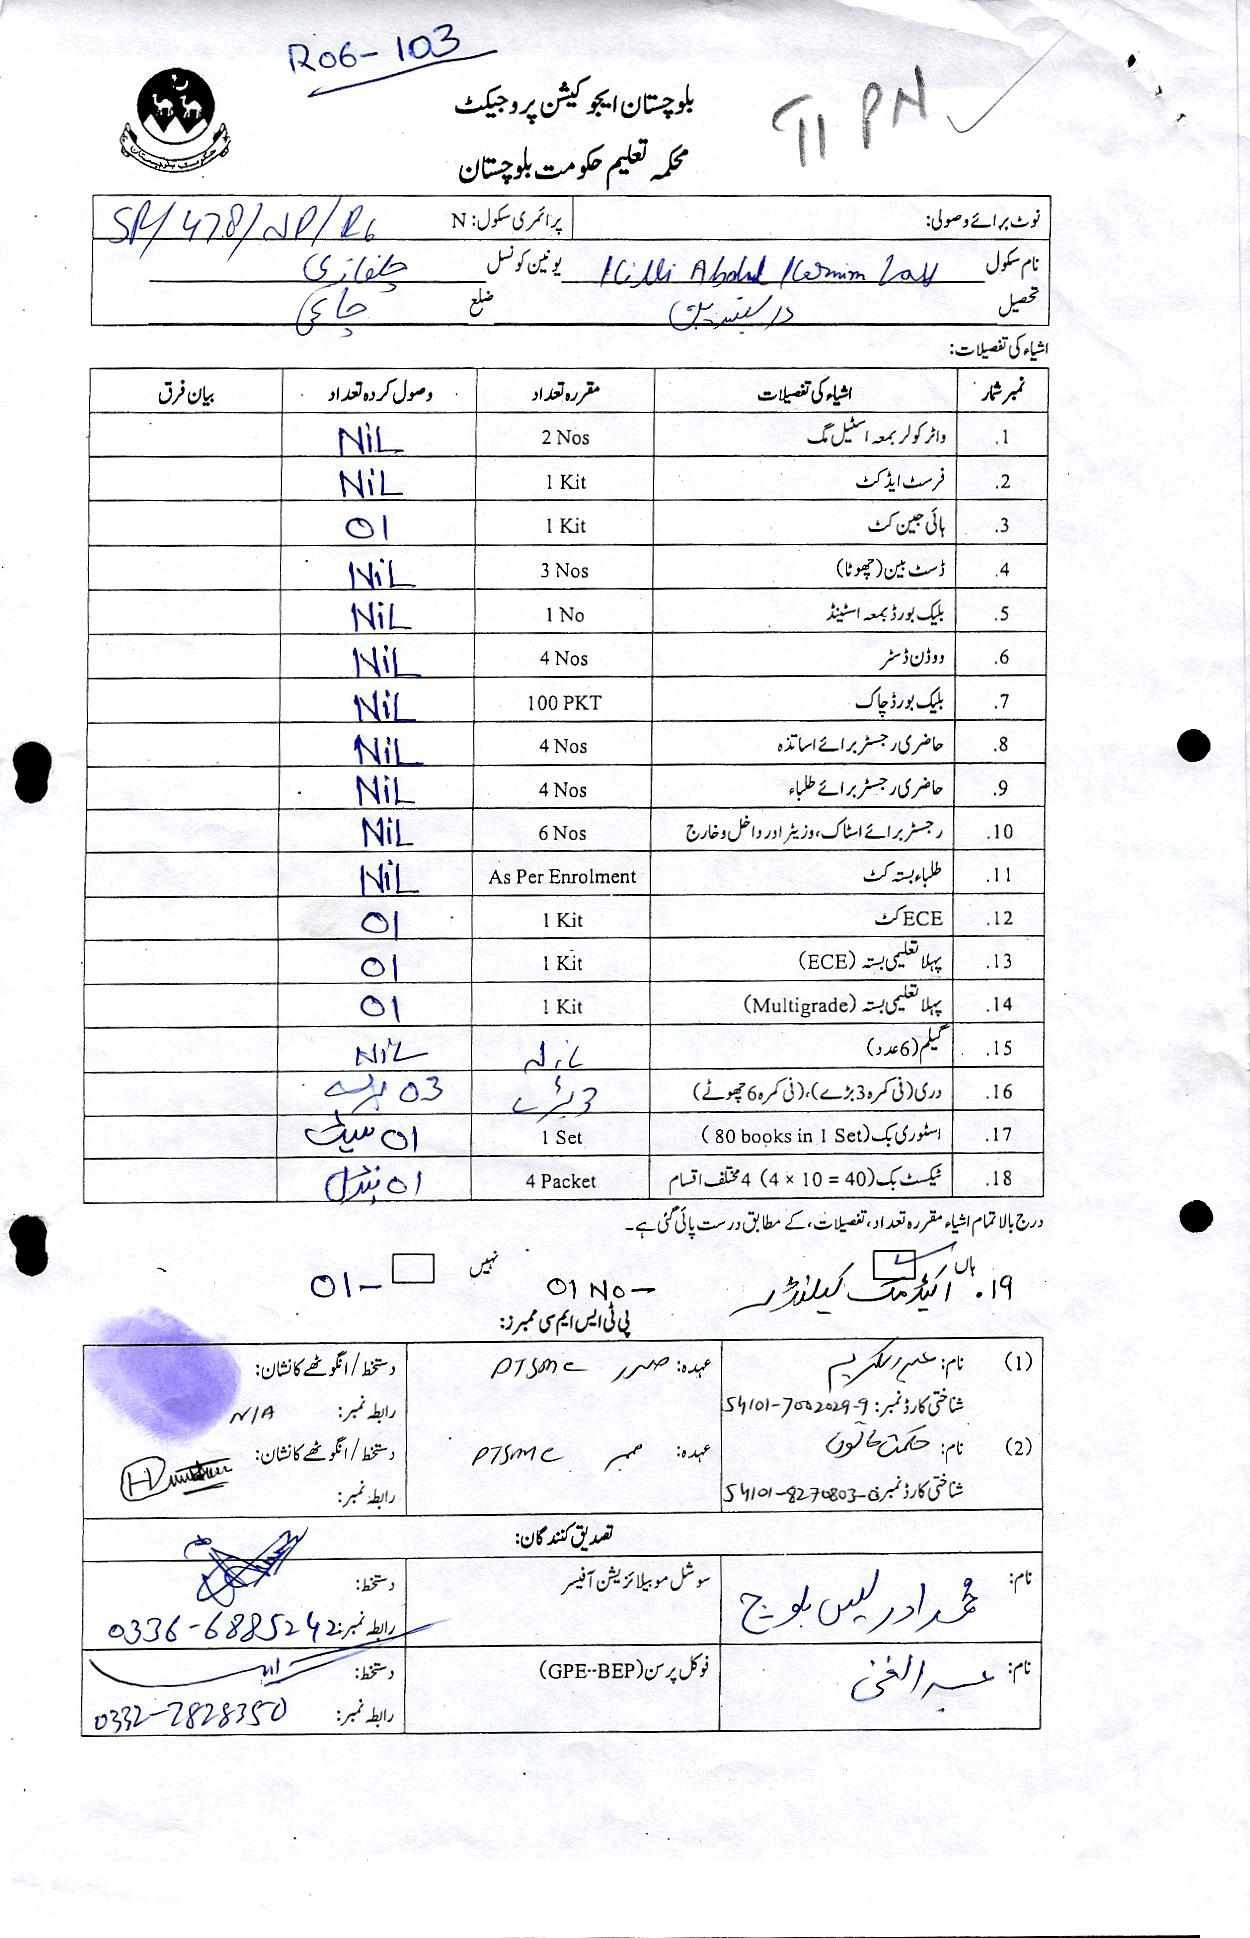 R06-103
TT PN
بلوچستان ایجوکیشن پروجیکٹ
محکمہ تعلیم حکومت بلوچستان
نوٹ برائے وصولی: پرائمری سکول: N SP/478/NP/R6
نام سکول Killi Abdul Karim یونین کونسل
تحصیل ضلع چاغی
اشیاء کی تفصیلات:
نمبر شمار اشیاء کی تفصیلات مقررہ تعداد وصول کردہ تعداد بیان فرق
1. واٹر کولر بمعہ اسٹیل مگ 2 Nos NiL
2. فرسٹ ایڈ کٹ 1 Kit NiL
3. ہائی جین کٹ 1 Kit 01
4. ڈسٹ بین (چھوٹا) 3 Nos NiL
5. بلیک بورڈ بمعہ اسٹینڈ 1 No NiL
6. ووڈن ڈسٹر 4 Nos NiL
7. بلیک بورڈ چاک 100 PKT NiL
8. حاضری رجسٹر برائے اساتذہ 4 Nos NiL
9. حاضری رجسٹر برائے طلباء 4 Nos NiL
10. رجسٹر برائے اسٹاک، وزیٹر اور داخل و خارج 6 Nos NiL
11. طلباء بستہ کٹ As Per Enrolment NiL
12. ECE کٹ 1 Kit 01
13. پہلا تعلیمی بستہ (ECE) 1 Kit 01
14. پہلا تعلیمی بستہ (Multigrade) 1 Kit 01
15. گیلم (6 عدد) NiL NiL
16. دری (فی کمرہ 3 بڑے)، (فی کمرہ 6 چھوٹے) 3 بڑے 03
17. اسٹوری بک (80 books in 1 Set) 1 Set 01 سیٹ
18. ٹیکسٹ بک (4 × 10 = 40) 4 مختلف اقسام 4 Packet 01 بنڈل
درج بالا تمام اشیاء مقررہ تعداد، تفصیلات، کے مطابق درست پائی گئی ہے۔
ہاں نہیں
۱۹. اکیڈمک کیلنڈر 01 No- 01-
پی ٹی ایس ایم سی ممبرز:
(1) نام: عبدالکریم عہدہ: صدر PTSMC دستخط/انگوٹھے کا نشان:
شناختی کارڈ نمبر: 54101-7002029-9 رابطہ نمبر: N/A
(2) نام: حکمت خاتون عہدہ: ممبر PTSMC دستخط/انگوٹھے کا نشان:
شناختی کارڈ نمبر 54101-8270803-0 رابطہ نمبر:
تصدیق کنندگان:
نام: محمد ادریس بلوچ سوشل موبیلائزیشن آفیسر دستخط:
رابطہ نمبر: 0336-6885242
نام: عبدالغنی فوکل پرسن (GPE--BEP) دستخط:
رابطہ نمبر: 0332-7828350